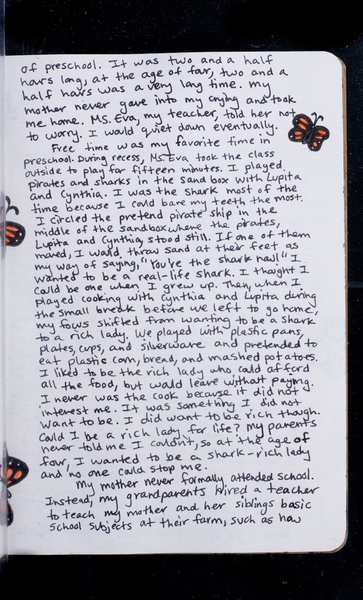 of preschool. It was two and a half
hours long, at the age of four, two and a
half hours was a very long time. My
mother never gave into my crying and took
me home. Ms. Eva, my teacher, told her not
to worry. I would quiet down eventually.
Free time was my favorite time in
preschool. During recess, Ms. Eva took the class
outside to play for fifteen minutes. I played
pirates and sharks in the sand box with Lupita
and Cynthia. I was the shark most of the
time because I could bare my teeth the most.
I circled the pretend pirate ship in the
middle of the sandbox where the pirates,
Lupita and Cynthia stood still. If one of them
moved, I would throw sand at their feet as
my way of saying, "You're the shark now!" I
wanted to be a real-life shark. I thought I
could be one when I grew up. Then, when I
played cooking with Cynthia and Lupita during
the small break before we left to go home,
my focus shifted from wanting to be a shark
to a rich lady. We played with plastic pans,
plates, cups, and silverware and pretended to
eat plastic corn, bread, and mashed potatoes.
I liked to be the rich lady who could afford
all the food, but would leave without paying.
I never was the cook because it did not
interest me. It was something I did not
want to be. I did want to be rich though.
Could I be a rich lady for life? My parents
never told me I couldn't, so at the age of
four, I wanted to be a shark-rich lady
and no one could stop me.
My mother never formally attended school.
Instead, my grandparents hired a teacher
to teach my mother and her siblings basic
school subjects at their farm, such as how